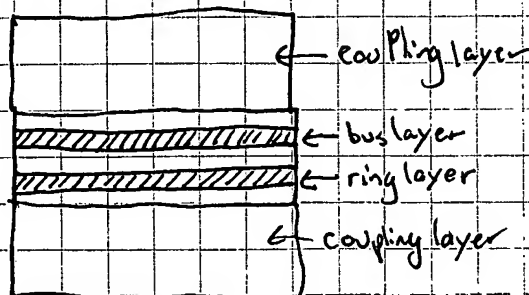 coupling layer
bus layer
ring layer
coupling layer